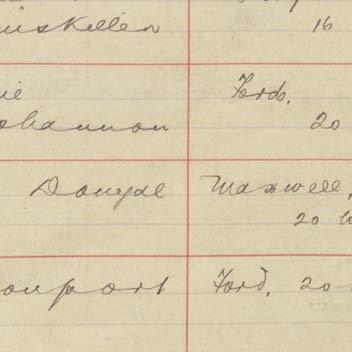 niskillen 16
ie Ford.
ohannon 20
Dougal Maxwell,
20
onport Ford, 20